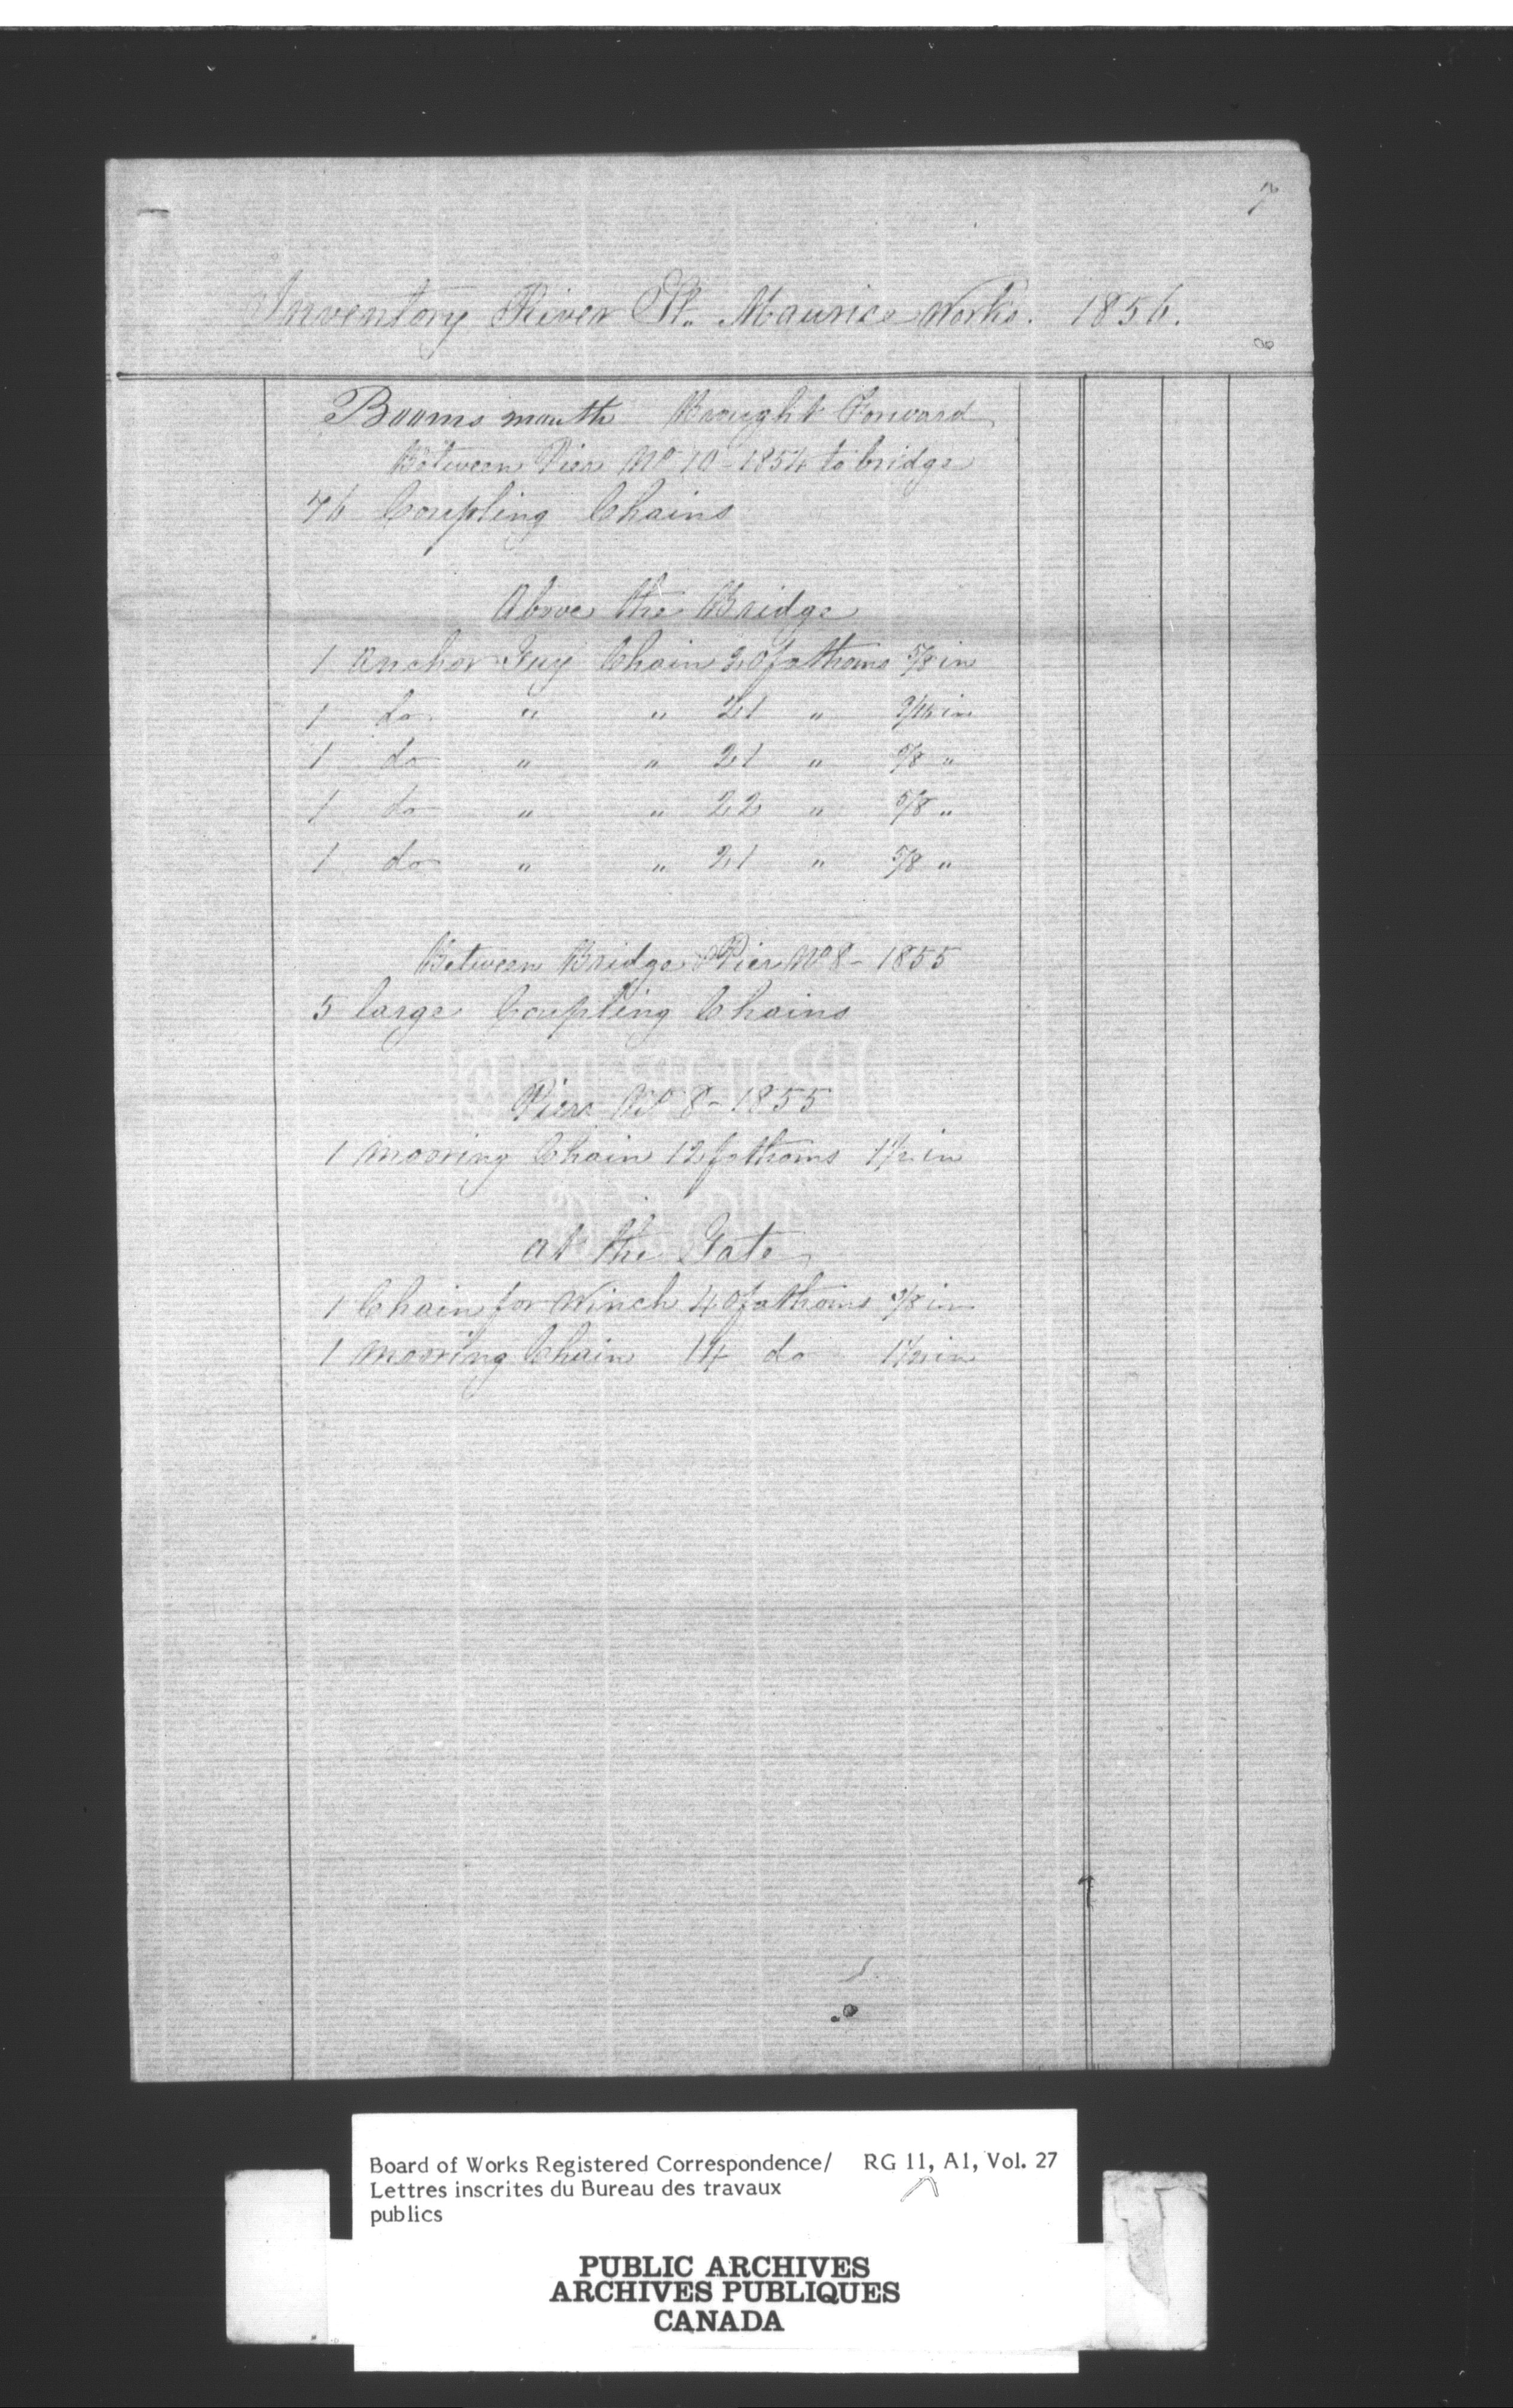 7
Inventory River St. Maurice Works. 1856.
8
Booms mouth Brought Forward
Between Pier No 10 - 1854 to bridge
76 Coupling Chains
Above the Bridge
1 Anchor Guy Chain 20 fathoms 5/8 in
1 do " " 21 " 9/16 in
1 do " " 21 " 5/8 "
1 do " " 22 " 5/8 "
1 do " " 21 " 5/8 "
Between Bridge & Pier No 8 - 1855
5 large Coupling Chains
Pier No 8 - 1855
1 Mooring Chain 12 fathoms 1 1/2 in
At the Gate
1 Chain for Winch 40 fathoms 3/8 in
1 Mooring Chain 14 do 1 1/2 in
Board of Works Registered Correspondence/ RG 11, A1, Vol. 27
Lettres inscrites du Bureau des travaux
publics
PUBLIC ARCHIVES
ARCHIVES PUBLIQUES
CANADA